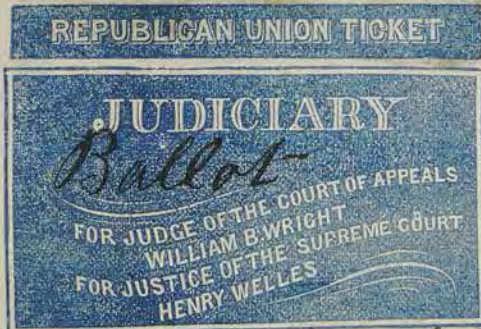 REPUBLICAN UNION TICKET
JUDICIARY
Ballot
FOR JUDGE OF THE COURT OF APPEALS
WILLIAM B. WRIGHT
FOR JUSTICE OF THE SUPREME COURT
HENRY WELLES